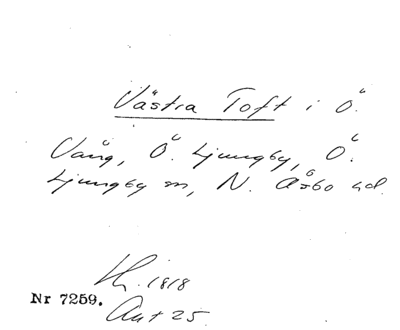 Västra Toft i Ö.
Vång, Ö. Ljungby, Ö.
Ljungby sn, N. Åsbo hd.
Lh. 1818
Nr 7259.
Akt 25